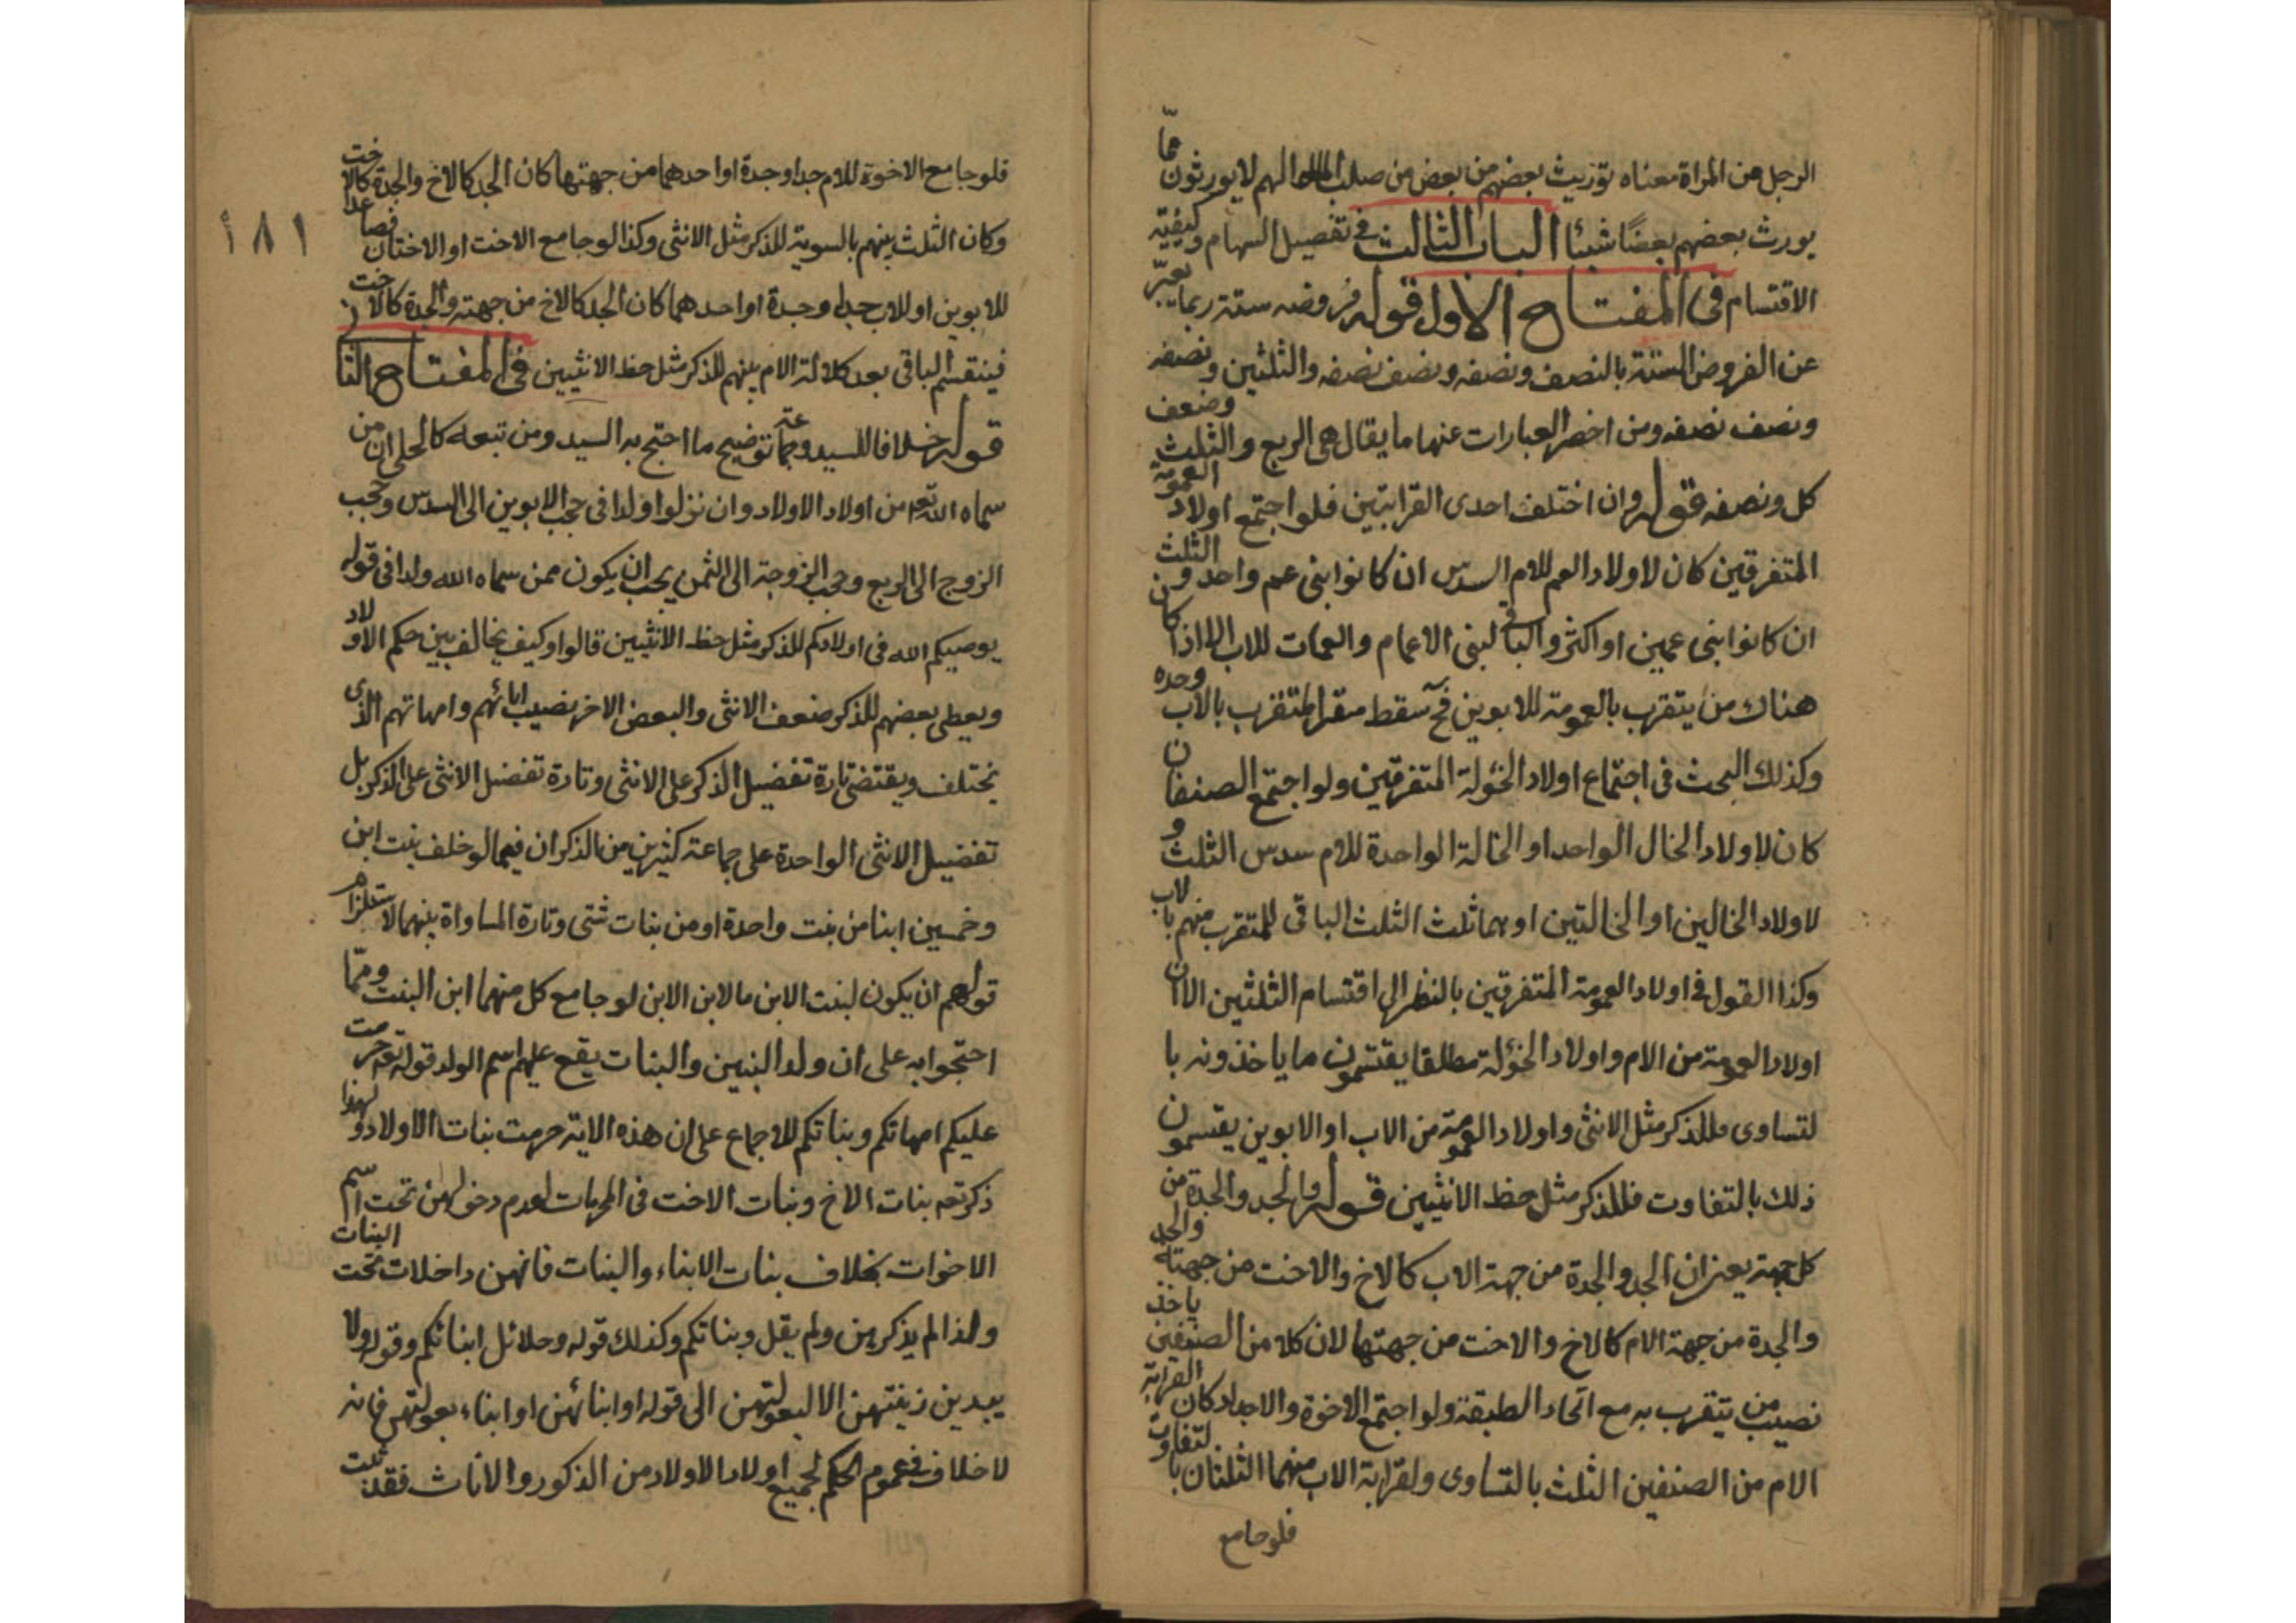 الرجل من المراة معناه توريث بعضهم من بعض من صلب المال انهم لا يورثون مما
يورث بعضهم بعضا شيئا الباب الثالث في تفصيل السهام وكيفية
الاقتسام في المفتاح الاول قوله فروضه ستة ربما يعبر
عن الفروض الستة بالنصف ونصفه ونصف نصفه والثلثين ونصفه
ونصف نصفه ومن اخصر العبارات عنها ما يقال هي الربع والثلث وضعف
كل ونصفه قوله وان اختلف احدى القرابتين فلو اجتمع اولاد العمومة
المتفرقين كان لاولاد العم للام السدس ان كانوا بنى عم واحد والثلث
ان كانوا بنى عمين او اكثر والباقي لبنى الاعمام والعمات للاب الا اذا كان
هناك من يتقرب بالعمومة للابوين فح سقط المتقرب بالاب وحده
وكذلك البحث في اجتماع اولاد الخئولة المتفرقين ولو اجتمع الصنفان
كان لاولاد الخال الواحد او الخالة الواحدة للام سدس الثلث و
لاولاد الخالين او الخالتين او هما ثلث الثلث الباقي للمتقرب منهم بالاب
وكذا القول في اولاد العمومة المتفرقين بالنظر الى اقتسام الثلثين الا ان
اولاد العمومة من الام واولاد الخئولة مطلقا يقتسمون ما ياخذونه با
لتساوى فللذكر مثل الانثى واولاد العمومة من الاب او الابوين يقتسمون
ذلك بالتفاوت فللذكر مثل حظ الانثيين قوله والجد والجدة من
كل جهة يعنى ان الجد والجدة من جهة الاب كالاخ والاخت من جهته والجد
والجدة من جهة الام كالاخ والاخت من جهتها لان كلا من الصنفين ياخذ
نصيب من يتقرب به مع اتحاد الطبقة ولو اجتمع الاخوة والاجداد كان لقرابة
الام من الصنفين الثلث بالتساوى ولقرابة الاب منهما الثلثان بالتفاوت
فلو جامع
١٨١
فلو جامع الاخوة للام جد او جدة او احدهما من جهتها كان الجد كالاخ والجدة كالاخت
وكان الثلث بينهم بالسوية للذكر مثل الانثى وكذا لو جامع الاخت او الاختان فصاعدا
للابوين او للاب جد او جدة او احدهما كان الجد كالاخ من جهته والجدة كالاخت
فينقسم الباقي بعد كلالة الام بينهم للذكر مثل حظ الانثيين في المفتاح الثا
قوله خلافا للسيد وجماعة توضيح ما احتج به السيد ومن تبعه كالحلى ان من
سماه الله تعه من اولاد الاولاد وان نزلوا ولدا في حجب الابوين الى السدس وحجب
الزوج الى الربع وحجب الزوجة الى الثمن يجب ان يكون ممن سماه الله ولدا في قوله
يوصيكم الله في اولادكم للذكر مثل حظ الانثيين قالوا وكيف يخالف بين حكم الاولاد
ويعطى بعضهم للذكر ضعف الانثى والبعض الاخر نصيب ابائهم وامهاتهم الذى
يختلف ويقتضى تارة تفضيل الذكر على الانثى وتارة تفضل الانثى على الذكر بل
تفضيل الانثى الواحدة على جماعة كثيرين من الذكران فيما لو خلف بنت ابن
وخمسين ابنا من بنت واحدة او من بنات شتى وتارة المساواة بينهما لاستلزام
قولهم ان يكون لبنت الابن ما لابن الابن لو جامع كل منهما ابن البنت ومما
احتجوا به على ان ولد البنين والبنات يقع عليهم اسم الولد قوله تعه حرمت
عليكم امهاتكم وبناتكم للاجماع على ان هذه الاية حرمت بنات الاولاد ولهذا
ذكر تعه بنات الاخ وبنات الاخت في المحرمات لعدم دخولهن تحت اسم
الاخوات بخلاف بنات الابناء والبنات فانهن داخلات تحت البنات
ولذا لم يذكرهن ولم يقل وبناتكم وكذلك قوله وحلائل ابنائكم وقوله ولا
يبدين زينتهن الا لبعولتهن الى قوله او ابنائهن او ابناء بعولتهن فانه
لا خلاف في عموم الحكم لجميع اولاد الاولاد من الذكور والاناث فقد ثبت